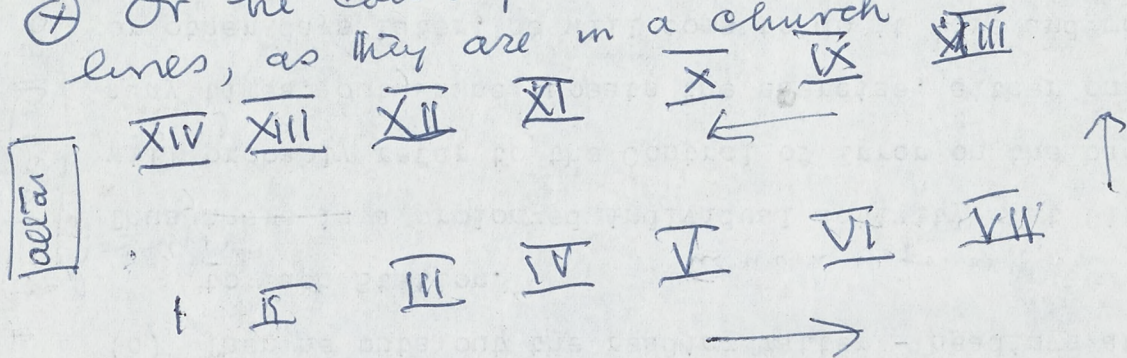 Or the
lines, as they are in a church
XIV XIII XII XI X IX XIII
altar
I II III IV V VI VII